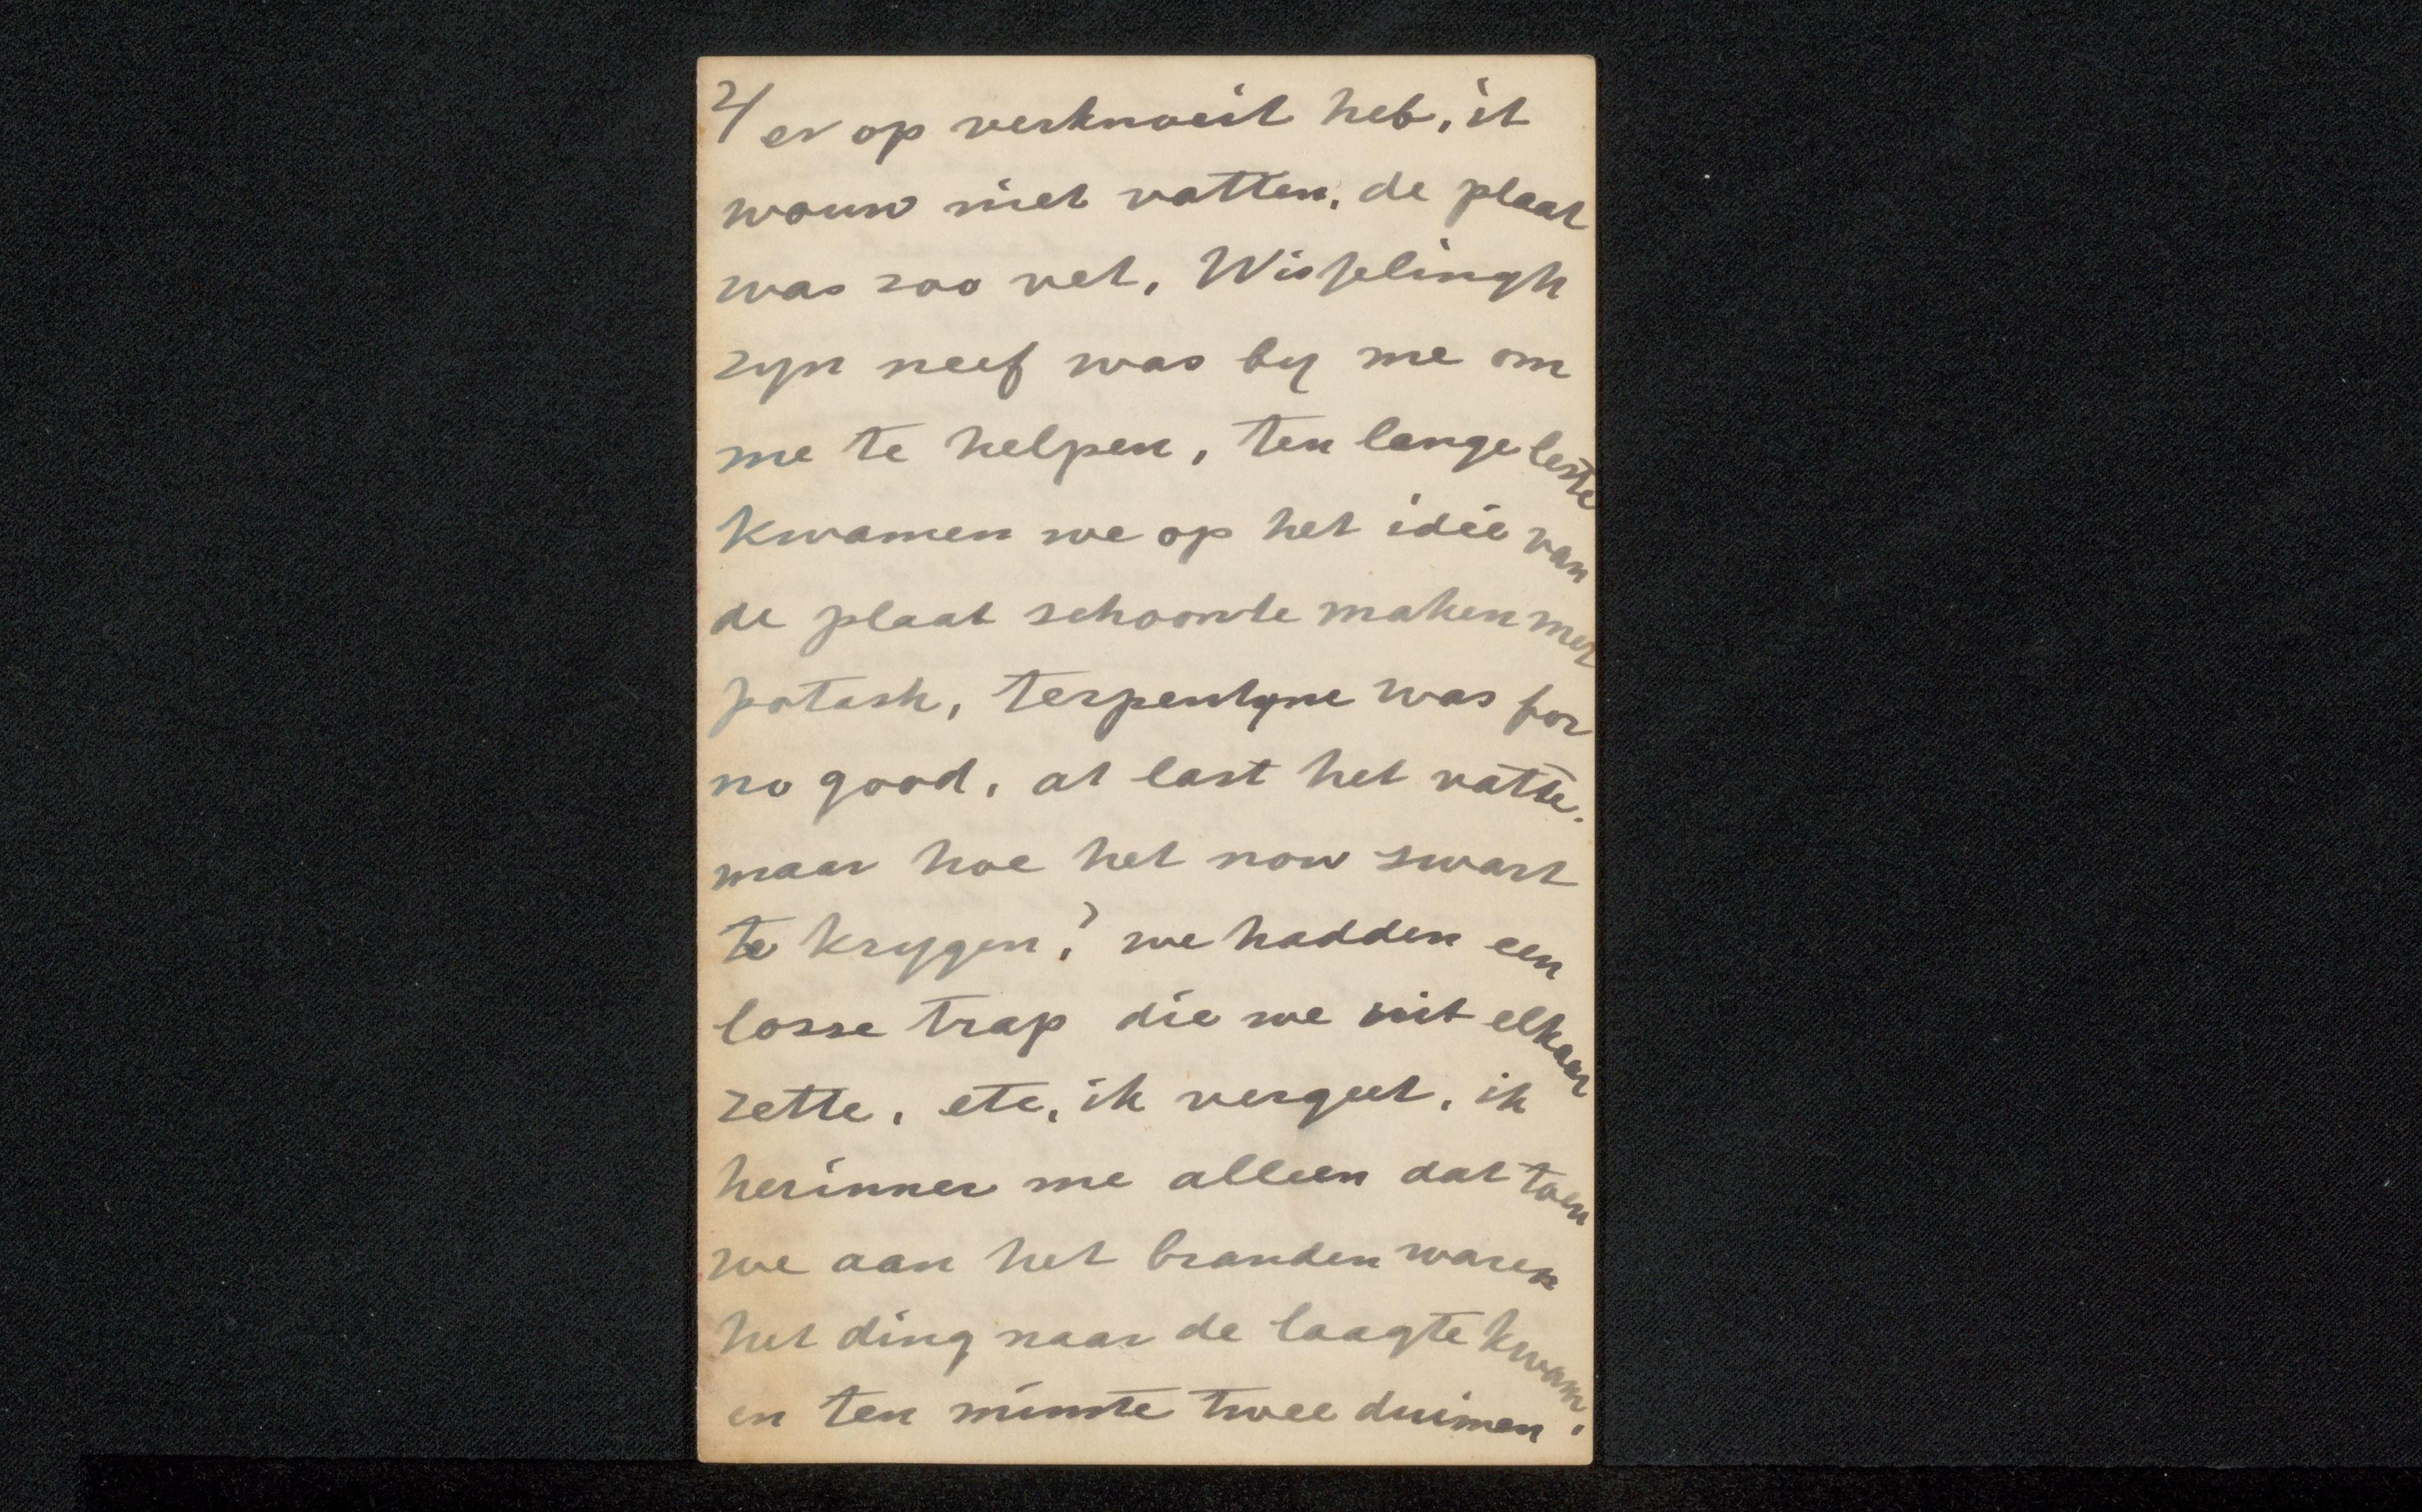 2/ er op verknoeit heb, it
wouw niet vatten, de plaat
was zoo vet, Wisselingh
zyn neef was by me om
me te helpen, ten lange leste
kwamen we op het idée van
de plaat schoon te maken met
potash, terpentyne was for
no good, at last het vatte.
maar hoe het now swart
te krygen? we hadden een
losse trap die we uit elkaar
zette, etc, ik vergeet, ik
herinner me alleen dat toen
we aan het branden waren
het ding naar de laagte kwam,
en ten minste twee duimen